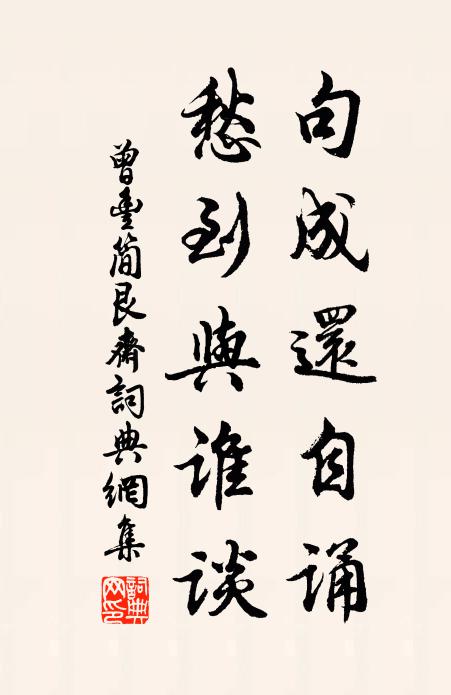 句成還自誦
愁到與誰談
曾豐簡艮齋詞典網集
詞典網印